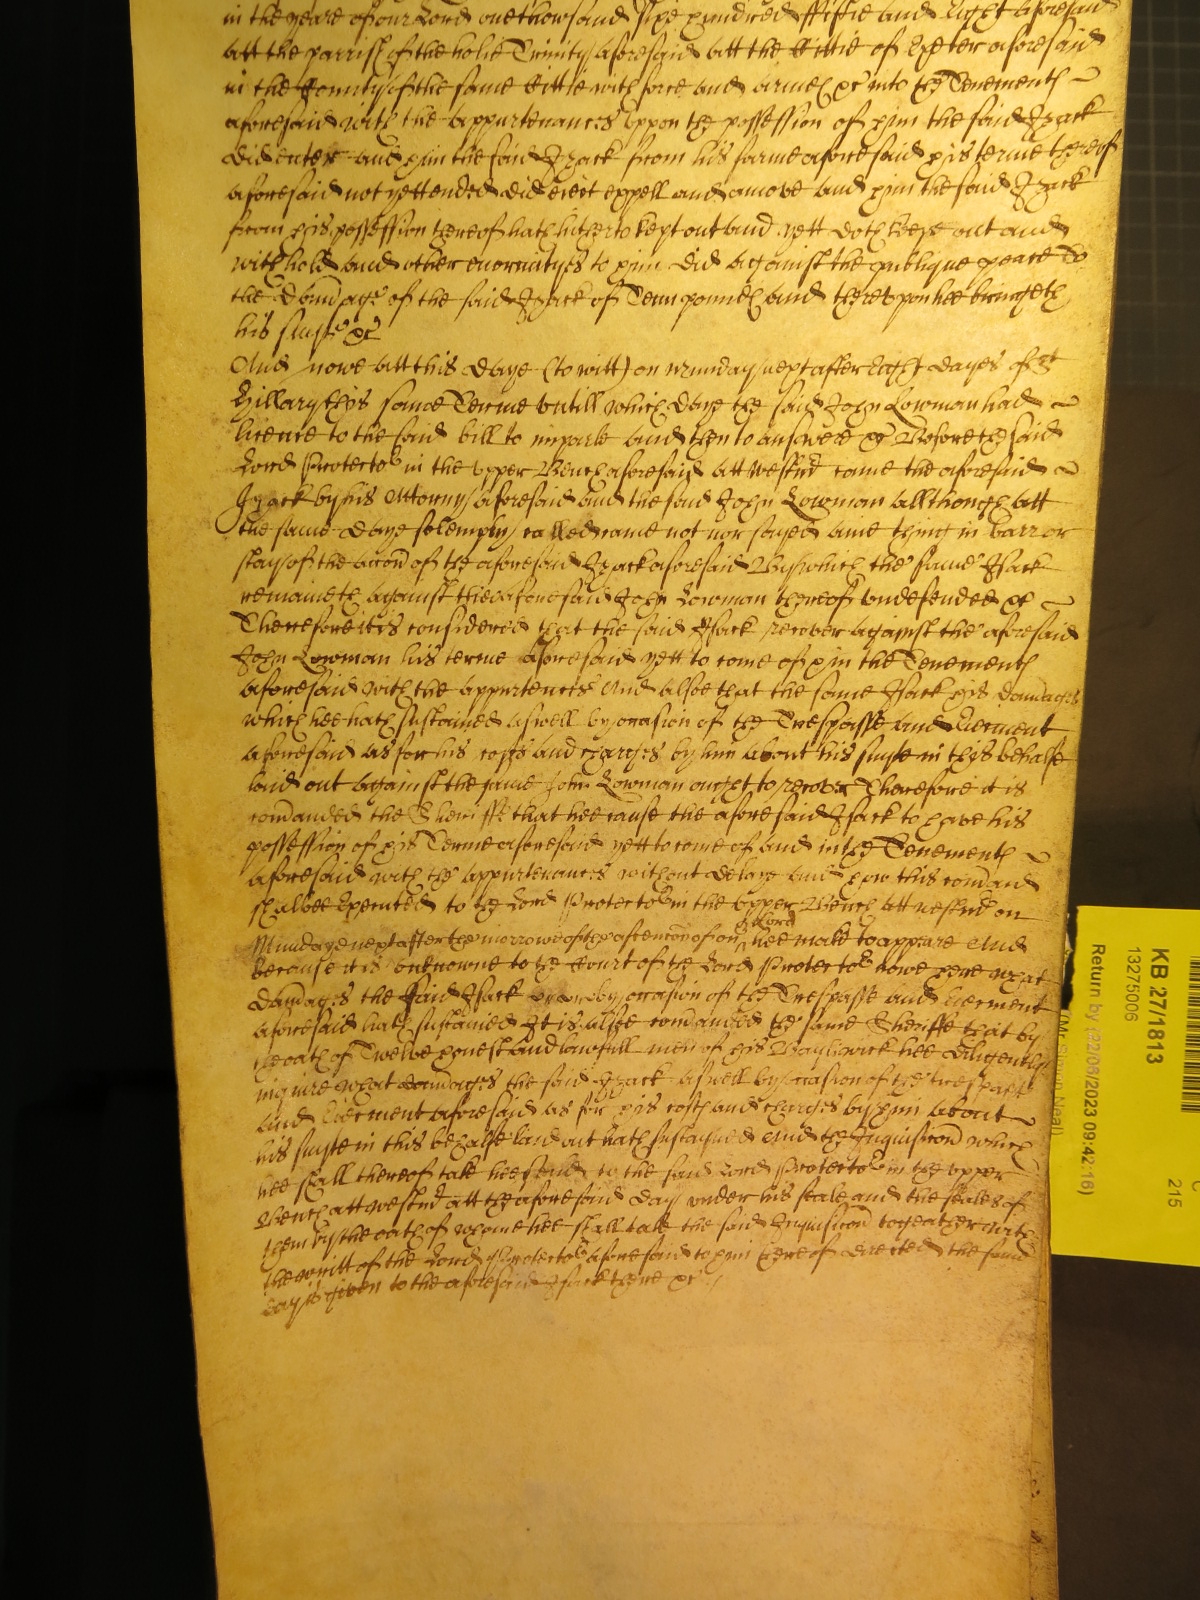 in the yeare of our Lord one thowsand sixe hundred ffiftie and Eight aforesaid
att the parrish of the holie Trinity aforesaid att the Cittie of Exeter aforesaid
in the County of the same Cittie with force and armes &c into the Tenements
aforesaid with the appurtenances uppon the possession of him the said Izack
did enter and him the said Izack from his farme aforesaid his terme thereof
aforesaid not yett ended did eiect expell and amove and him the said Izack
from his possession thereof hath hitherto kept out and yett doth keepe out and
withhold and other enormityes to him did against the publique peace To
the damage of the said Izack of Tenn pounds and thereupon hee bringeth
his suyte &c
And nowe att this daye (to witt) on Munday next after Eight dayes of St
Hillary this same Terme untill which daye the said John Lowman had
licence to the said bill to imparle and then to answere &c Before the said
Lord Protector in the upper Bench aforesaid att Westmr came the aforesaid
Izack by his Attorny aforesaid and the said John Lowman allthough att
the same daye solemply called came not nor sayed anie thing in barr or
stay of the accon of the aforesaid Izack aforesaid By which the same Isack
remaineth against the aforesaid John Lowman thereof undefended &c
Therefore it is considered that the said Isack recover against the aforesaid
John Lowman his terme aforesaid yett to come of & in the Tenements
aforesaid with the appurtences And alsoe that the same Isack his damages
which hee hath sustained aswell by occasion of the Trespasse and Eiectment
aforesaid as for his costs and charges by him about his suyte in this behalfe
laid out against the same John Lowman ought to recover Therefore it is
comanded the Sheriffe that hee cause the aforesaid Isack to have his
possession of his Terme aforesaid yett to come of and in the Tenements
aforesaid with the appurtenances without delaye and how this comand
shalbee Executed to the Lord Protector in the upper Bench att Westmr on
Munday next after the morrowe of the ascencon of our Lord hee make to appeare And
because it is unknowne to the Court of the Lord Protector nowe here what
damages the said Isack by occasion of the Trespasse and Eiectment
aforesaid hath sustained It is alsoe comanded the same Sheriffe that by
the oath of Twelve honest and lawfull men of his Baylywick hee diligently
inquire what damages the said Izack aswell by occasion of the trespasse
and Eiectment aforesaid as for his costs and charges by him about
his suyte in this behalfe laid out hath sustayned And the Inquisicon which
hee shall thereof take hee send to the said Lord Protector in the upper
Bench att Westmr att the aforesaid day under his seale and the seales of
them by the oath of whome hee shall take the said Inquisicon togeather with
the writt of the Lord Protector aforesaid to him thereof directed the same
day is given to the aforesaid Isack there &c
KB 27/1813
13275006
215
Return by (22/06/2023 09:42:16)